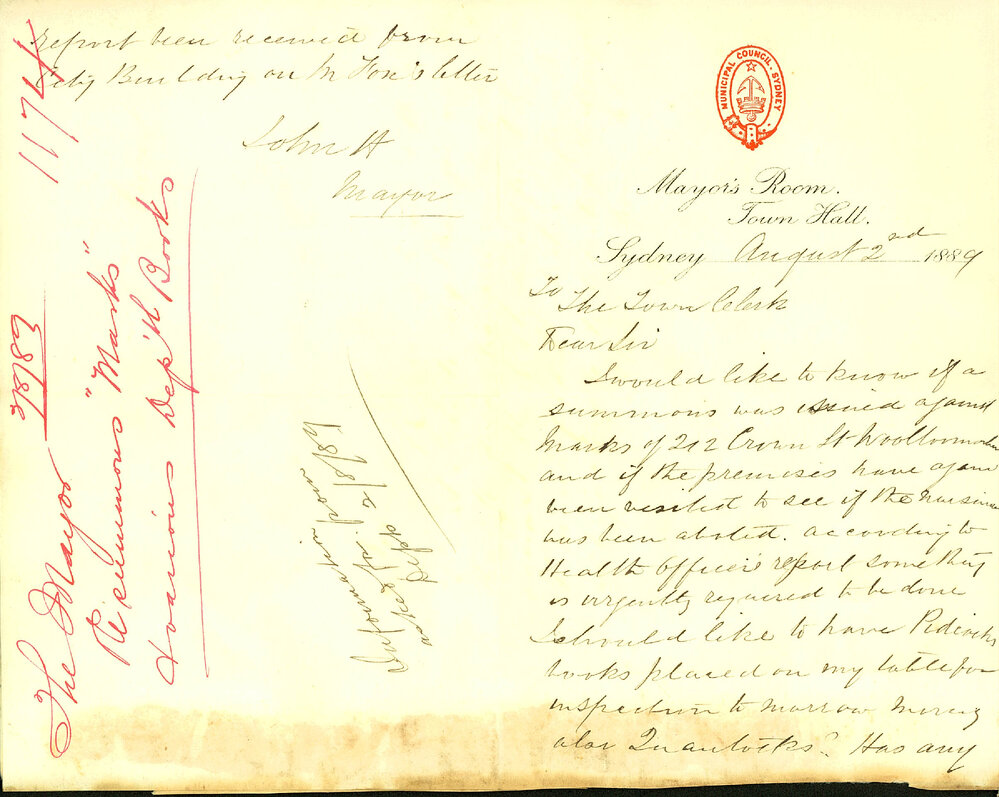 MUNICIPAL COUNCIL. SYDNEY
Mayor's Room.
Town Hall.
Sydney August 2nd 1889
To
The Town Clerk
Dear Sir
I would like to know if a
summons was issued against
Marks of 212 Crown St Woolloomooloo
and if the premises have again
been visited to see if the nuisance
has been abated. according to
Health officer's report something
is urgently required to be done
I should like to have
books placed on my table for
inspection to morrow morning
also Has any
report been received from
City Building on Mr Fox's letter
John H
Mayor
Information from
asked for. 2/8/89
The Mayor
Re summons "Marks"
Various Dep'th Books
1174